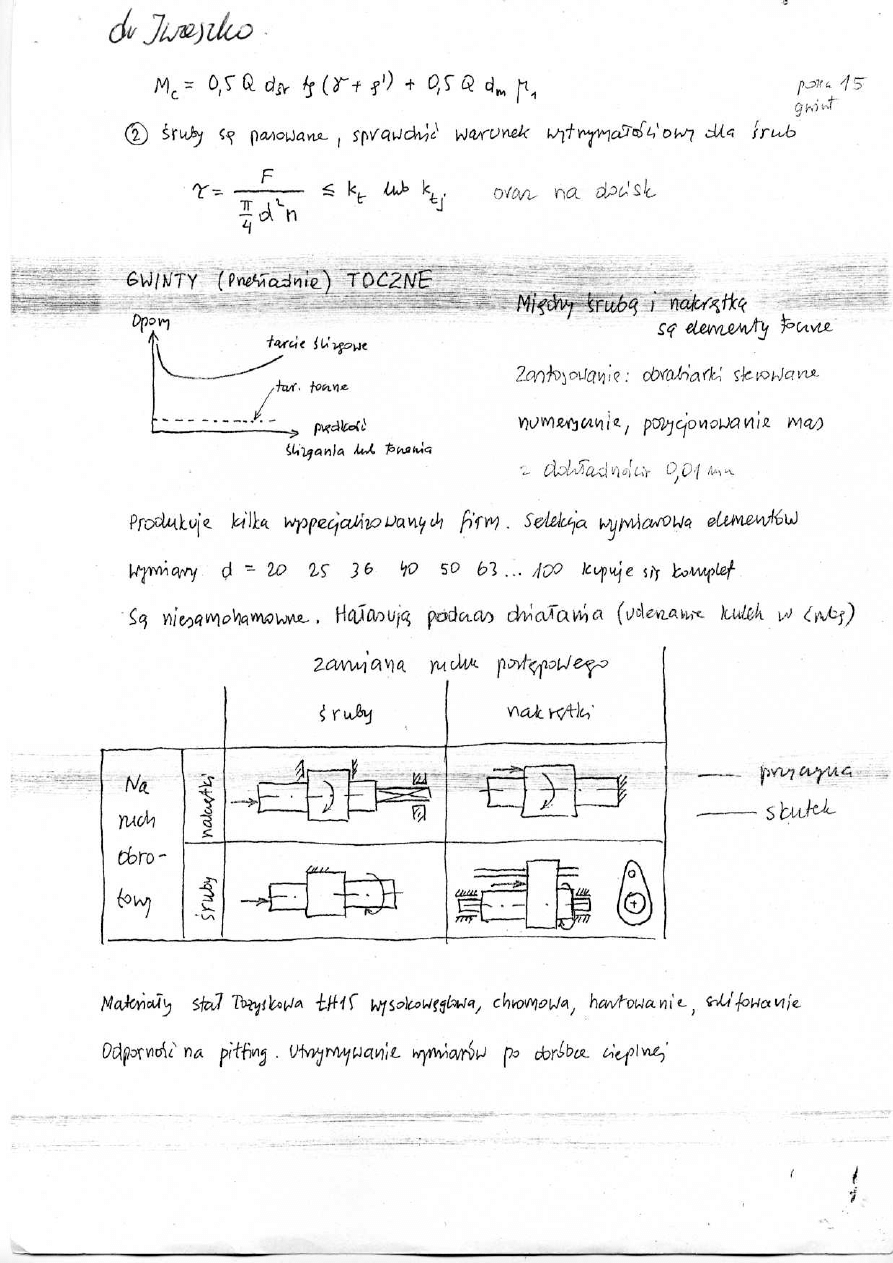 dr Iwaszko.
M_c = 0,5 Q d_śr tg (γ + ρ') + 0,5 Q d_m μ_1
15
gwint
② śruby są pasowane, sprawdzić warunek wytrzymałościowy dla śrub
τ = F / (π/4 d² n) ≤ k_t lub k_tj oraz na docisk
GWINTY (Przekładnie) TOCZNE
Między śrubą i nakrętką
są elementy toczne
Opory
tarcie ślizgowe
tar. toczne
prędkość
ślizgania lub toczenia
Zastosowanie: obrabiarki sterowane
numerycznie, pozycjonowanie mas
z dokładnością 0,01 mm
Produkuje kilka wyspecjalizowanych firm. Selekcja wymiarowa elementów
wymiary d = 20 25 36 40 50 63... 100 kupuje się komplet
Są niesamohamowne. Hałasują podczas działania (uderzanie kulek w
Zamiana ruchu postępowego
śruby
nakrętki
Na
ruch
obro-
towy
nakrętki
śruby
— przyczyna
— skutek
Materiały stal łożyskowa ŁH15 wysokowęglowa, chromowa, hartowanie, szlifowanie
Odporność na pitting. Utrzymywanie wymiarów po obróbce cieplnej